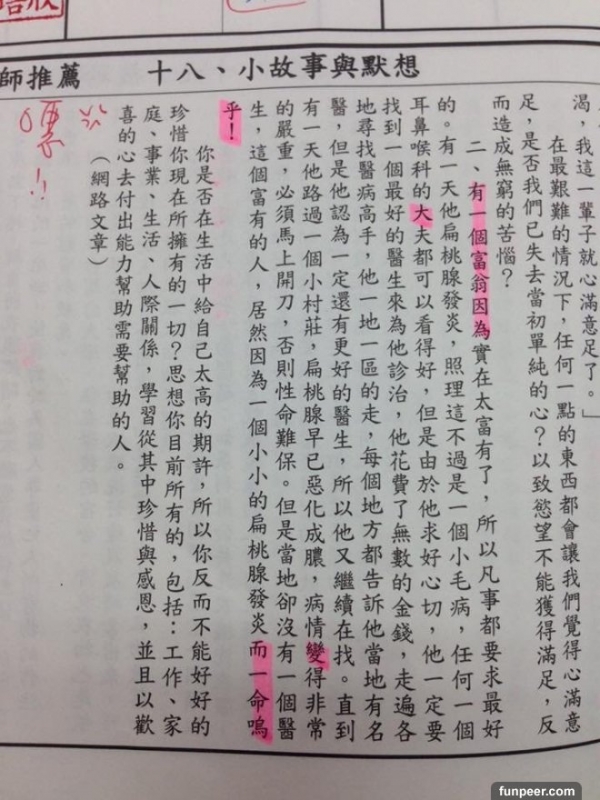 師推薦
十八、小故事與默想
渴，我這一輩子就心滿意足了。」
在最艱難的情況下，任何一點的東西都會讓我們覺得心滿意
足，是否我們已失去當初單純的心？以致慾望不能獲得滿足，反
而造成無窮的苦惱？
二、有一個富翁因為實在太富有了，所以凡事都要求最好
的。有一天他扁桃腺發炎，照理這不過是一個小毛病，任何一個
耳鼻喉科的大夫都可以看得好，但是由於他求好心切，他一定要
找到一個最好的醫生來為他診治，他花費了無數的金錢，走遍各
地尋找醫病高手，他一地一區的走，每個地方都告訴他當地有名
醫，但是他認為一定還有更好的醫生，所以他又繼續在找。直到
有一天他路過一個小村莊，扁桃腺早已惡化成膿，病情變得非常
的嚴重，必須馬上開刀，否則性命難保。但是當地卻沒有一個醫
生，這個富有的人，居然因為一個小小的扁桃腺發炎而一命嗚
乎！
你是否在生活中給自己太高的期許，所以你反而不能好好的
珍惜你現在所擁有的一切？思想你目前所有的，包括：工作、家
庭、事業、生活、人際關係，學習從其中珍惜與感恩，並且以歡
喜的心去付出能力幫助需要幫助的人。
（網路文章）
funpeer.com